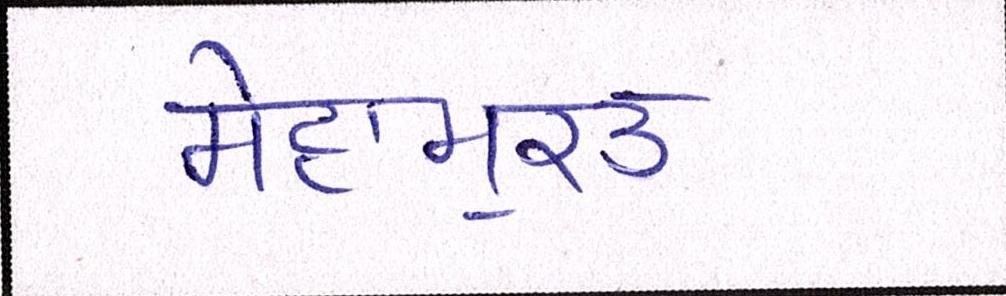 ਸੇਹਾਸੁਰਤ